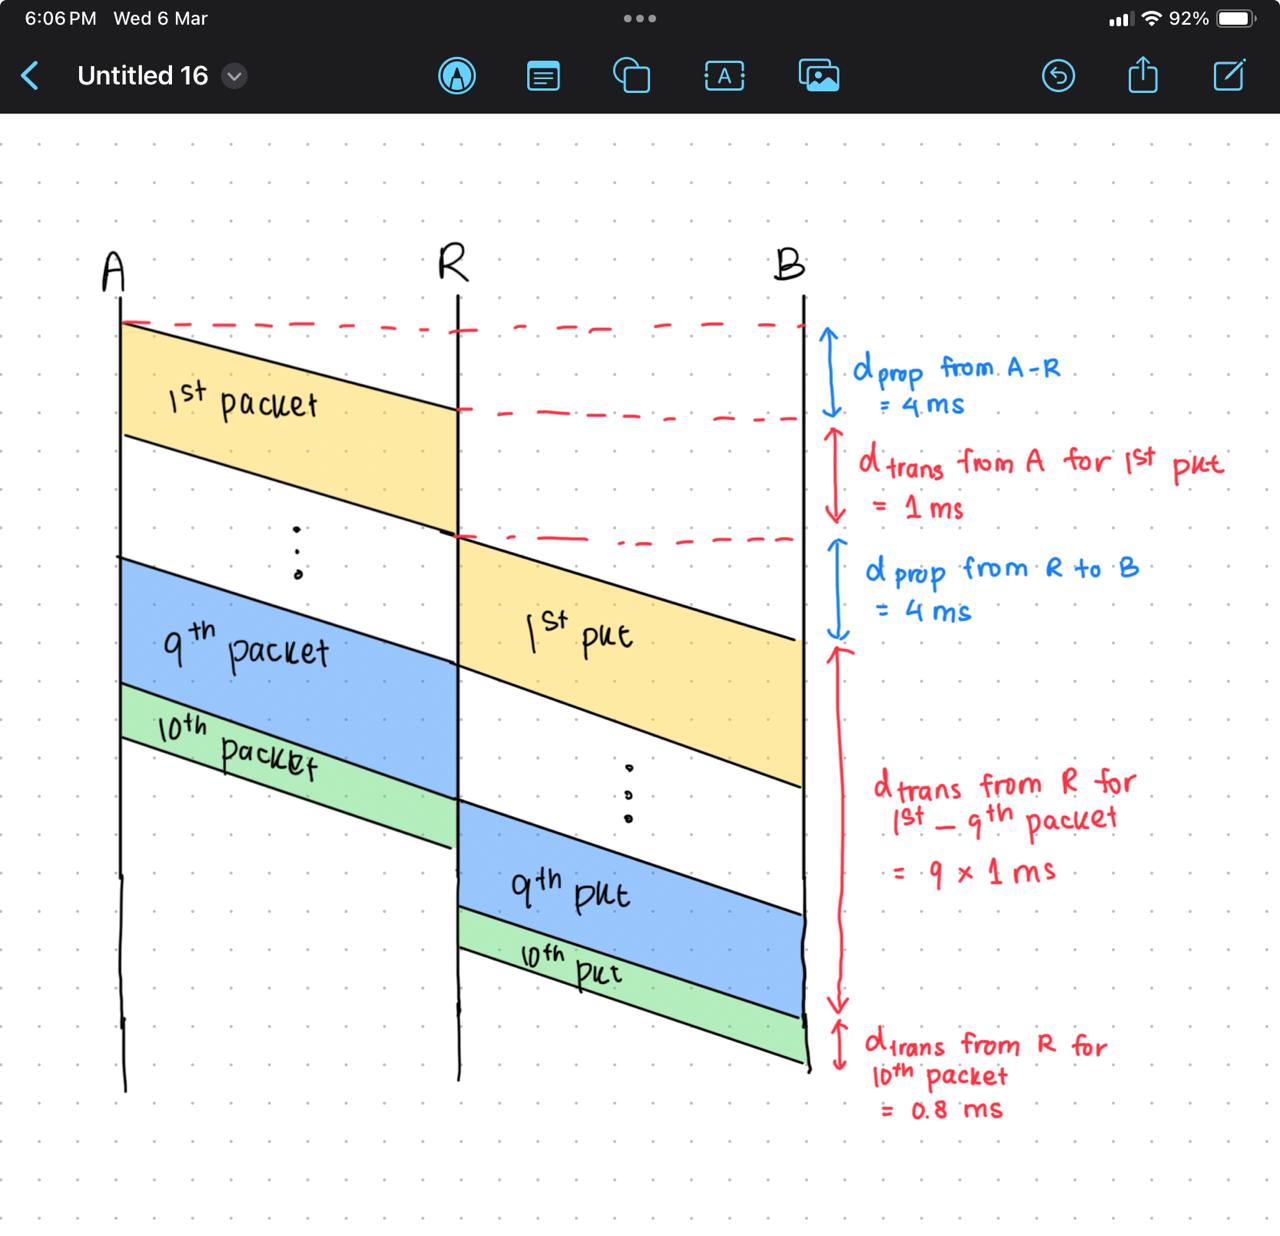 6:06 PM Wed 6 Mar
92%
Untitled 16
A
A
R
B
1st packet
9th packet
10th packet
1st pkt
9th pkt
10th pkt
dprop from A-R
= 4 ms
dtrans from A for 1st pkt
= 1 ms
dprop from R to B
= 4 ms
dtrans from R for
1st – 9th packet
= 9 × 1 ms
dtrans from R for
10th packet
= 0.8 ms